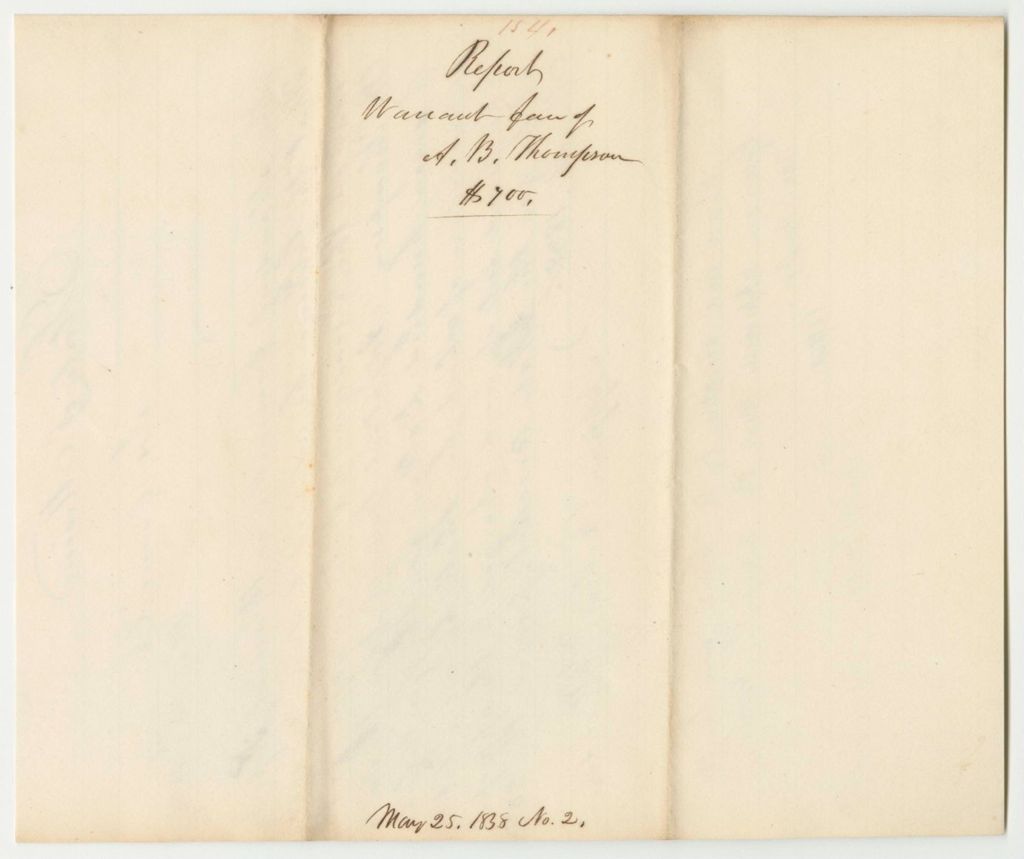 154.
Report
Warrant fav of
A. B. Thompson
$700.
May 25. 1838 No. 2.